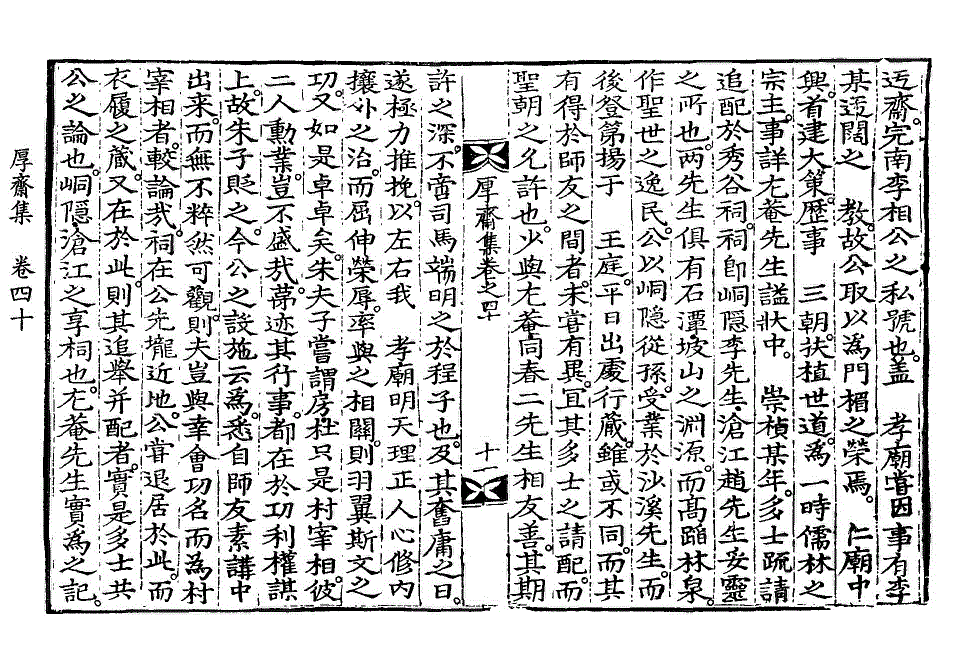 迃齋。完南李相公之私號也。盖　孝廟嘗因事有李
某迃闊之　敎。故公取以爲門楣之榮焉。仁廟中
興。首建大策。歷事　三朝。扶植世道。爲一時儒林之
宗主。事詳尤菴先生謚狀中。　崇禎某年。多士疏請
追配於秀谷祠。祠卽峒隱李先生,滄江趙先生妥靈
之所也。两先生俱有石潭,坡山之淵源。而高蹈林泉。
作聖世之逸民。公以峒隱從孫。受業於沙溪先生。而
後登第揚于　王庭。平日出處行藏。雖或不同。而其
有得於師友之間者。未嘗有異。宜其多士之請配。而
聖朝之允許也。少與尤菴,同春二先生相友善。其期
厚齋集卷之四十　十一
許之深。不啻司馬端明之於程子也。及其奮庸之日。
遂極力推挽。以左右我　孝廟明天理正人心修內
攘外之治。而屈伸榮辱。率與之相關。則羽翼斯文之
功。又如是卓卓矣。朱夫子嘗謂房,杜只是村宰相。彼
二人勳業。豈不盛㢤。苐迹其行事。都在於功利權謀
上。故朱子貶之。今公之設施云爲。悉自師友素講中
出來。而無不粹然可觀。則夫豈與幸會功名而爲村
宰相者。較論㢤。祠在公先壠近地。公嘗退居於此。而
衣履之藏。又在於此。則其追擧并配者。實是多士共
公之論也。峒隱,滄江之享祠也。尤菴先生實爲之記。
厚齋集　卷四十